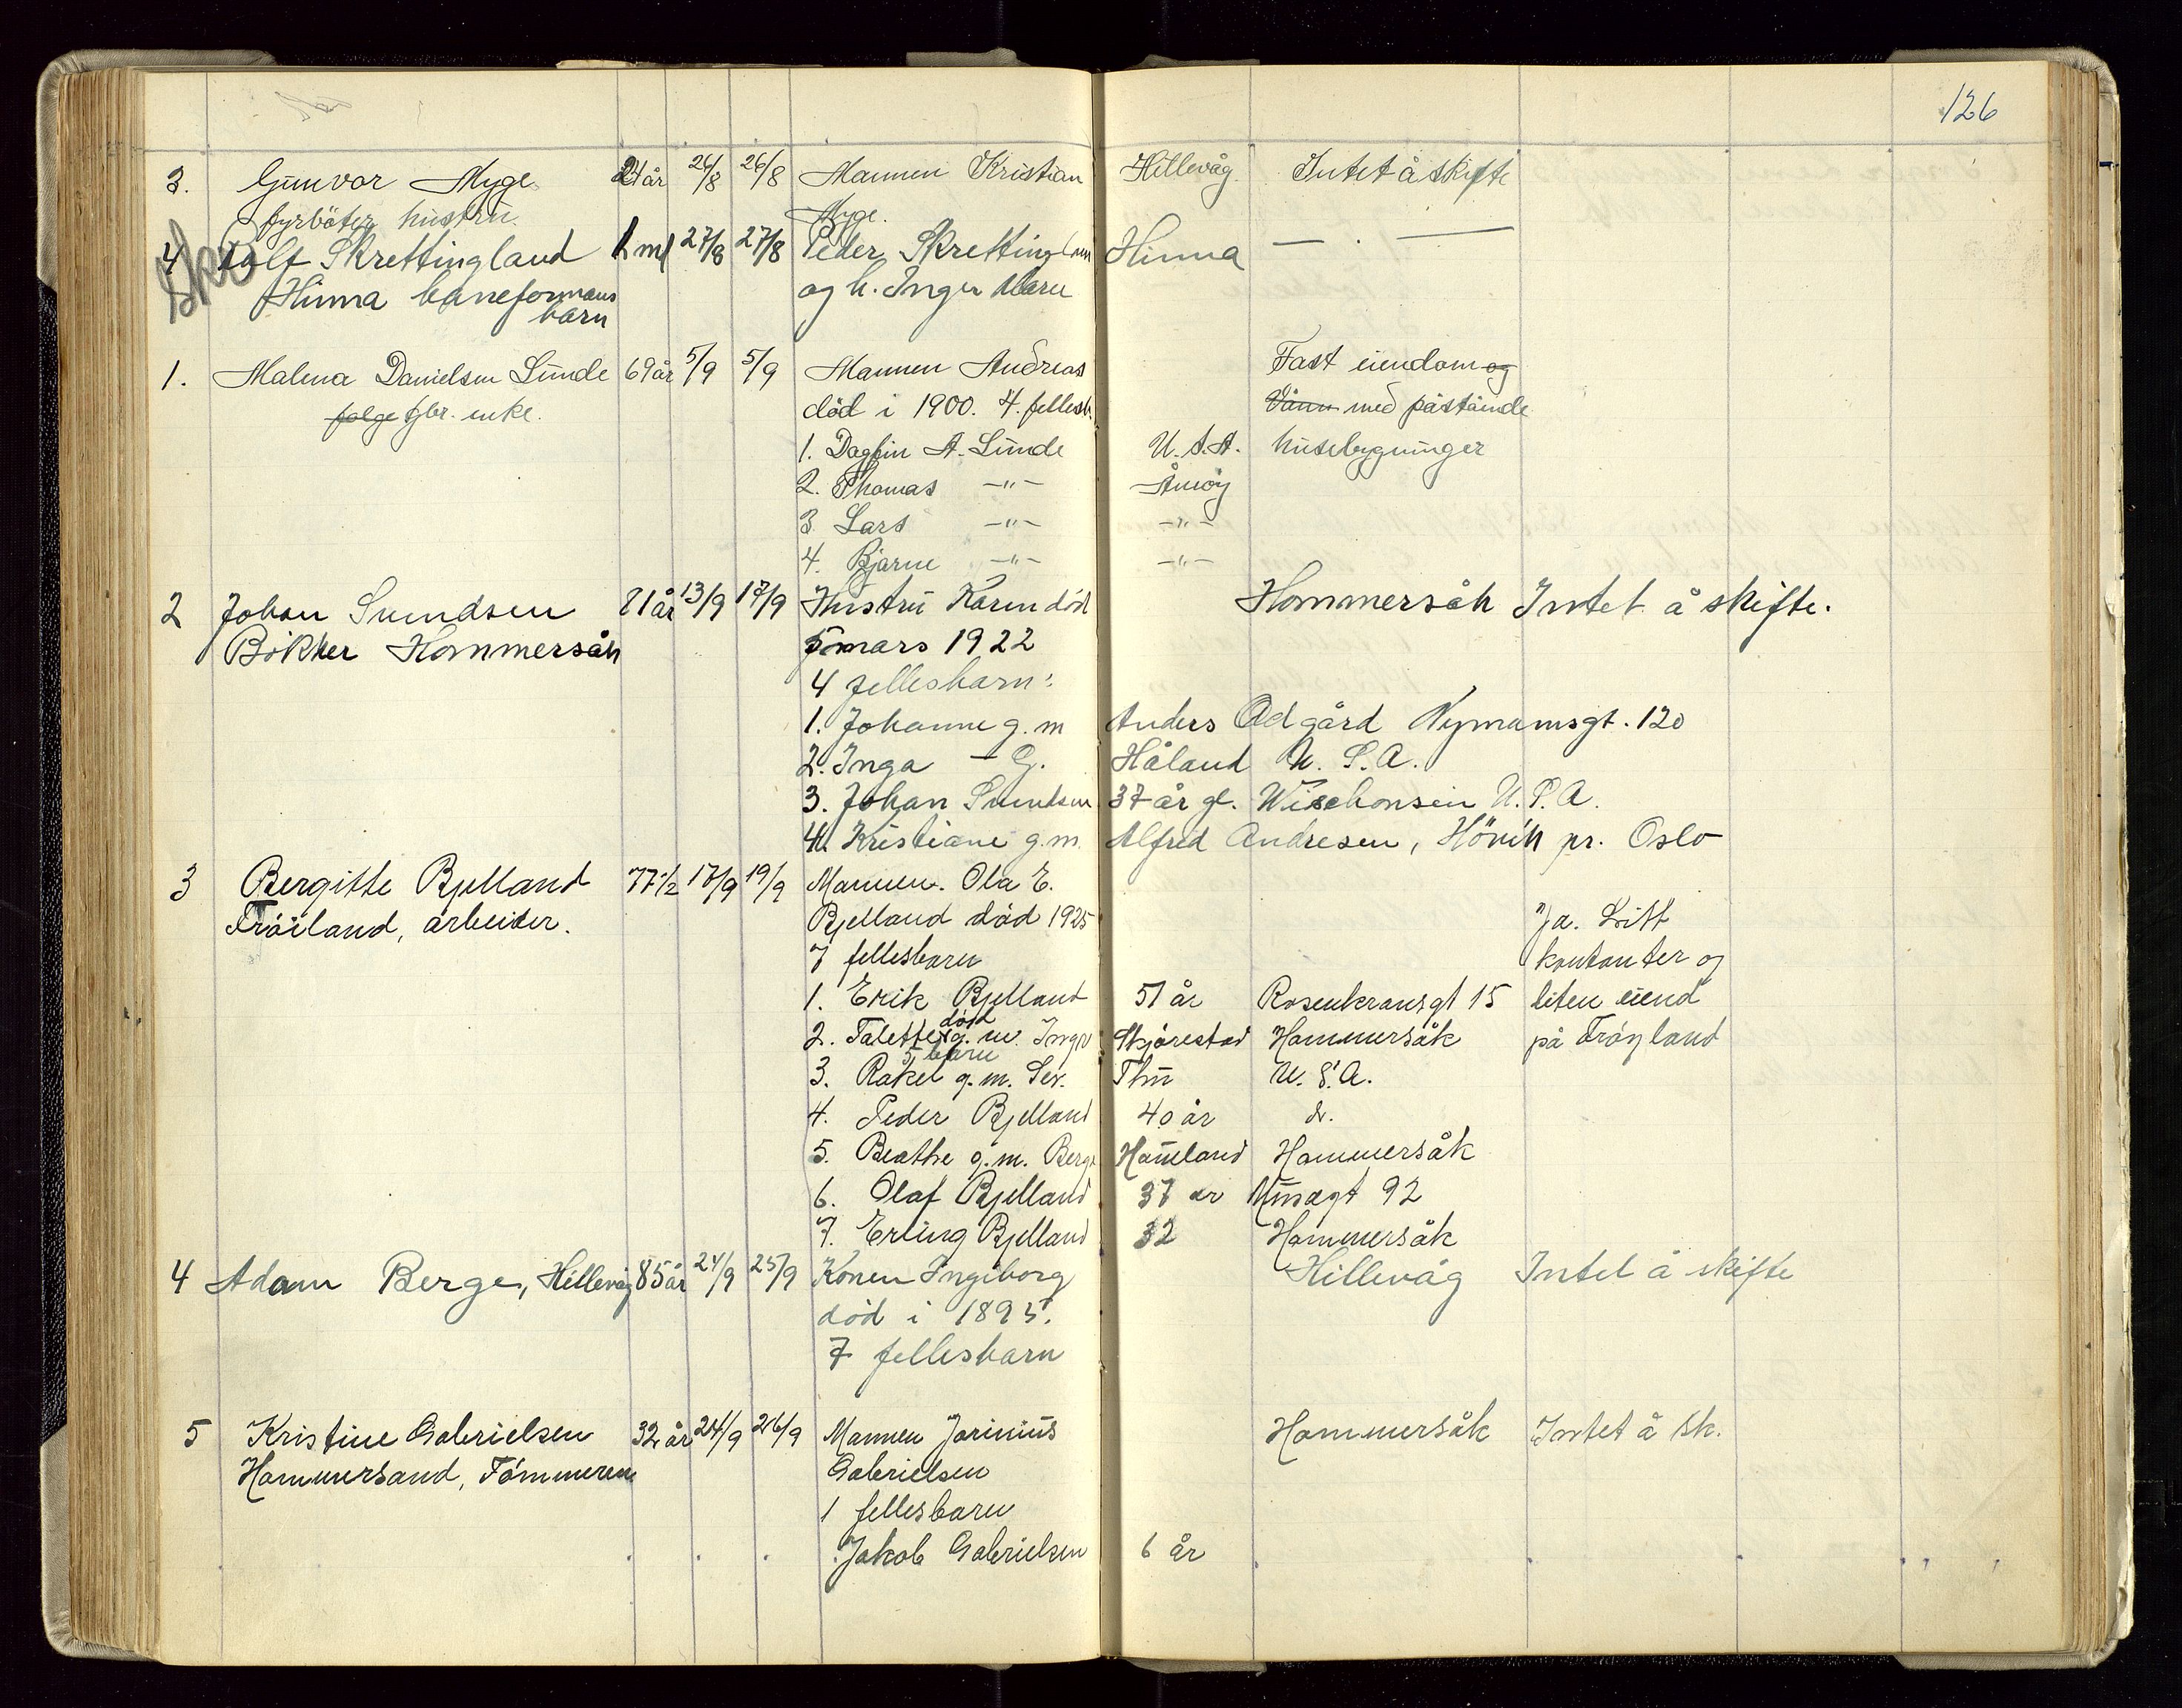 126
3. Gunvor Myge 24 år 26/8 26/8 Mannen Kristian Hillevåg Intet å skifte
fyrböter hustru Myge.
4 Rolf Skrettingland 1 md 27/8 27/8 Peder Skrettingland Hinna — . —
Hinna baneformans og h. Inger Marie
barn
1. Malena Danielsen Lunde 69 år 5/9 5/9 Mannen Andreas Fast eiendom og
følge gbr. enke. död i 1900. 4. fellesb. med påstående
1. Dagfin A. Lunde U.S.A. husebygninger
2. Thomas -"- Åmöy
3 Lars -"- -"-
4. Bjarne -"- -"-
2 Johan Svendsen 81 år 13/9 17/9 Hustru Karen död Hommersåk Intet å skifte.
Bökker Hommersåk mars 1922
4 fellesbarn:
1. Johanne g. m Anders Ådgård Nymannsgt. 120
2. Inga - G. Håland U.S.A.
3. Johan Svendsen 37 år gl. Wischonsin U.S.A.
4. Kristiane g. m. Alfred Andresen, Hövik pr. Oslo
3 Bergitte Bjelland 77 1/2 17/9 19/9 Mannen. Ola E.
Fröiland, arbeider. Bjelland död 1925 Ja. Litt
7 fellesbarn kontanter og
1. Erik Bjelland 51 år Rosenkransgt 15 liten eiend
död
2. Talette g. m. Ingv. Skjörestad Hommersåk på Fröyland
5 barn
3. Rakel g. m. Sev. Thu U.S.A.
4. Peder Bjelland 40 år d.
5. Beathe g. m. Berge Hauland Hommersåk
6. Olaf Bjelland 37 år 92
7. Erling Bjelland 32 Hommersåk
4 Adam Berge, Hillevåg 85 år 24/9 25/9 Konen Ingiborg Hillevåg Intet å skifte
död i 1895.
7 fellesbarn
5 Kristine Gabrielsen 32 år 24/9 26/9 Mannen Jorinius Hommersåk Intet å sk.
Hommersand, Tömmerm Gabrielsen
1 fellesbarn
Jakob Gabrielsen 6 år